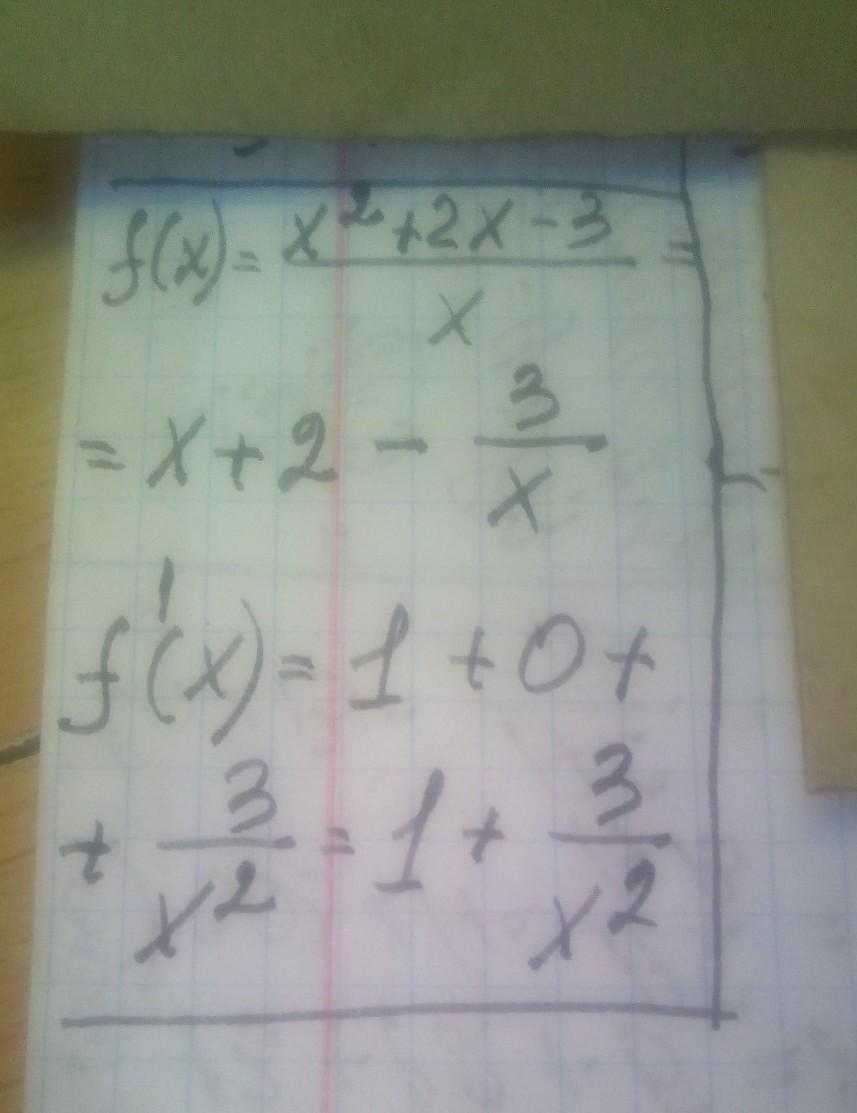 f(x) = \frac{x^2+2x-3}{x} =
= x + 2 - \frac{3}{x}
f'(x) = 1 + 0 +
+ \frac{3}{x^2} = 1 + \frac{3}{x^2}